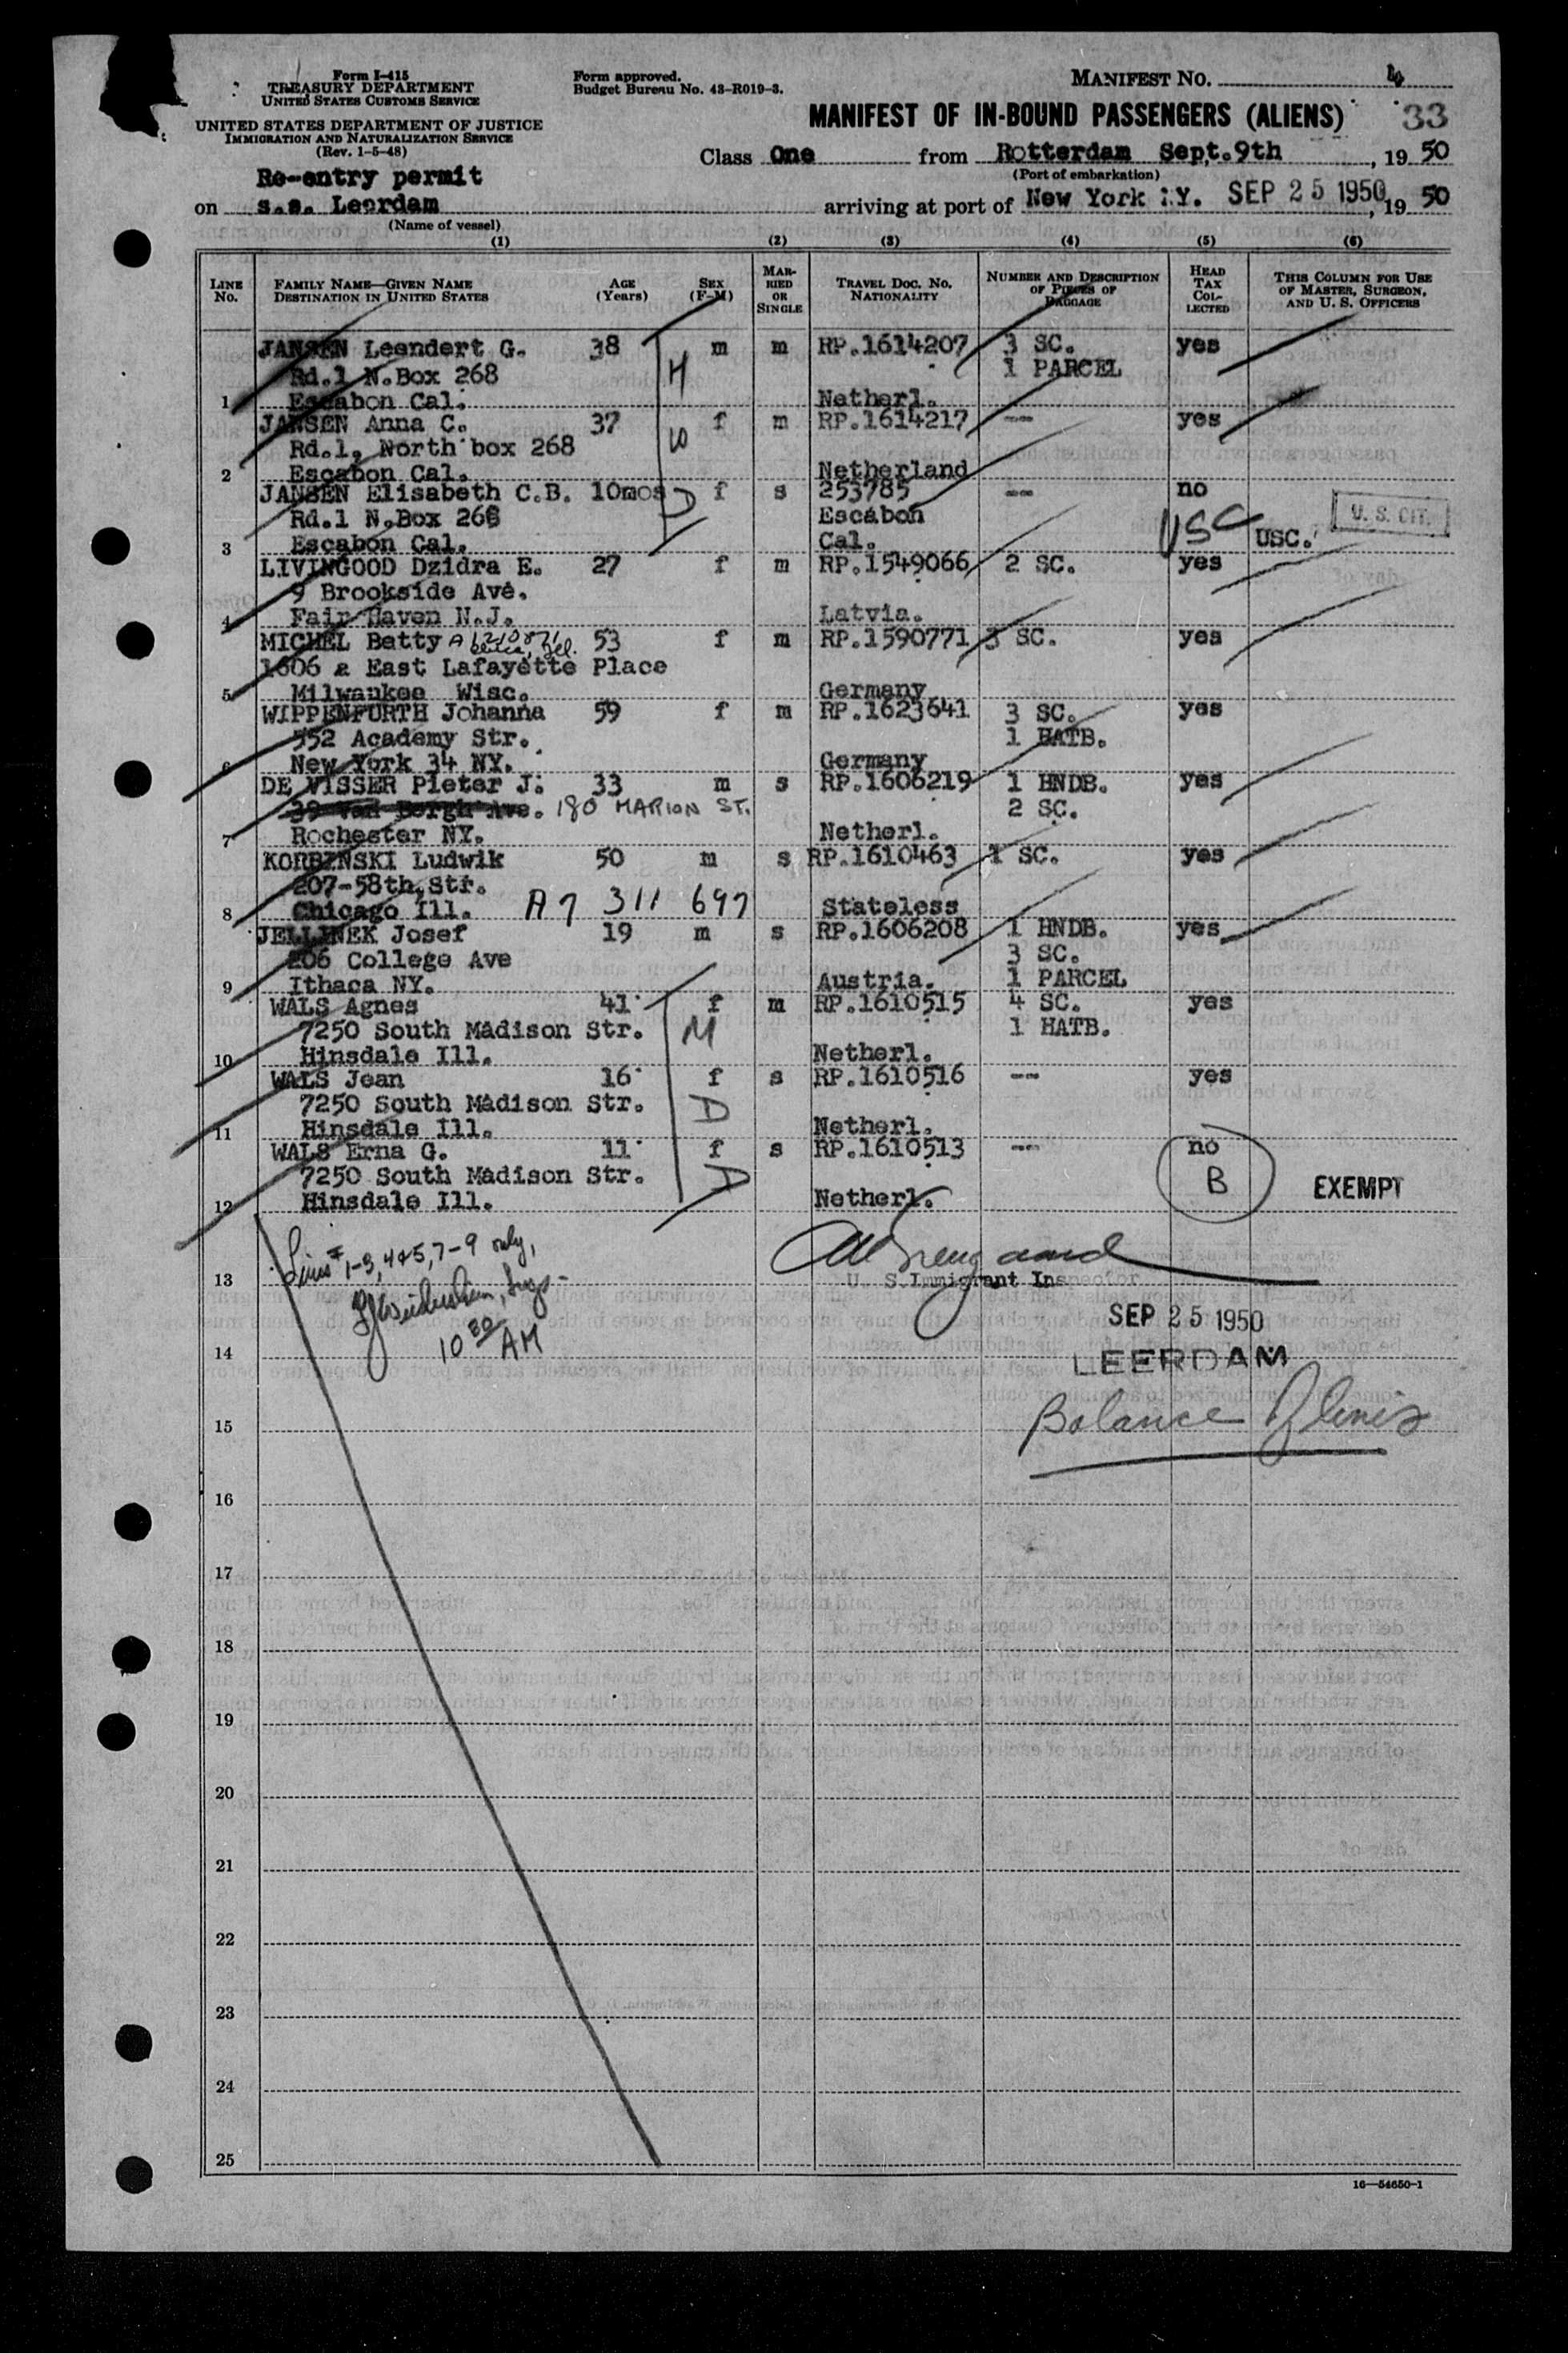 Form I-415
TREASURY DEPARTMENT
UNITED STATES CUSTOMS SERVICE
UNITED STATES DEPARTMENT OF JUSTICE
IMMIGRATION AND NATURALIZATION SERVICE
(Rev. 1-5-48)
Form approved.
Budget Bureau No. 43-R019-3.
MANIFEST NO. 4
MANIFEST OF IN-BOUND PASSENGERS (ALIENS) 33
Class One from Rotterdam Sept.9th, 19 50
(Port of embarkation)
Re-entry permit
on s.s. Leerdam arriving at port of New York N.Y. SEP 25 1950, 19 50
(Name of vessel)
(1) (2) (3) (4) (5) (6)
LINE No. FAMILY NAME—GIVEN NAME DESTINATION IN UNITED STATES AGE (Years) SEX (F-M) MARRIED OR SINGLE TRAVEL DOC. NO. NATIONALITY NUMBER AND DESCRIPTION OF PIECES OF BAGGAGE HEAD TAX COLLECTED THIS COLUMN FOR USE OF MASTER, SURGEON, AND U. S. OFFICERS
JANSEN Leendert G. 38 m m RP.1614207 3 SC. yes
Rd.1 N.Box 268 H 1 PARCEL
1 Escabon Cal. Netherl.
JANSEN Anna C. 37 f m RP.1614217 -- yes
Rd.1, North box 268
2 Escabon Cal. Netherland
JANSEN Elisabeth C.B. 10mos D f s 253785 -- no
Rd.1 N.Box 268 Escabon U. S. CIT.
3 Escabon Cal. Cal. USC USC.
LIVINGOOD Dzidra E. 27 f m RP.1549066 2 SC. yes
9 Brookside Ave.
4 Fair Haven N.J. Latvia.
MICHEL Betty 53 f m RP.1590771 3 SC. yes
1606 a East Lafayette Place
5 Milwaukee Wisc. Germany
WIPPENFURTH Johanna 59 f m RP.1623641 3 SC. yes
552 Academy Str. 1 HATB.
6 New York 34 NY. Germany
DE VISSER Pieter J. 33 m s RP.1606219 1 HNDB. yes
180 MARION ST. 2 SC.
7 Rochester NY. Netherl.
KORBINSKI Ludwik 50 m s RP.1610463 1 SC. yes
207-58th.Str.
8 Chicago Ill. A7 311 697 Stateless
JELLINEK Josef 19 m s RP.1606208 1 HNDB. yes
206 College Ave 3 SC.
9 Ithaca NY. Austria. 1 PARCEL
WALS Agnes 41 f m RP.1610515 4 SC. yes
7250 South Madison Str. M 1 HATB.
10 Hinsdale Ill. Netherl.
WALS Jean 16 f s RP.1610516 -- yes
7250 South Madison Str. D
11 Hinsdale Ill. Netherl.
WALS Erna G. 11 f s RP.1610513 -- no
7250 South Madison Str. D B EXEMPT
12 Hinsdale Ill. Netherl.
1-3, 4&5, 7-9 only,
13 U. S. Immigrant Inspector
10 30 AM
SEP 25 1950
14 LEERDAM
Balance
15
16
17
18
19
20
21
22
23
24
25
16—54650-1